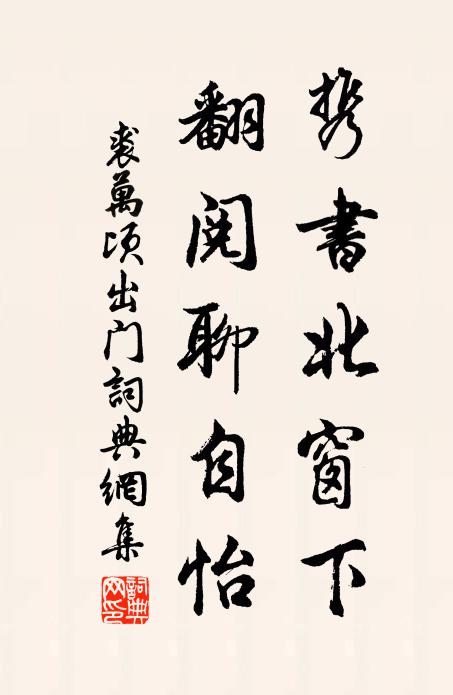 携書北窗下
翻閱聊自怡
裘萬頃出门詞典網集
詞典网印